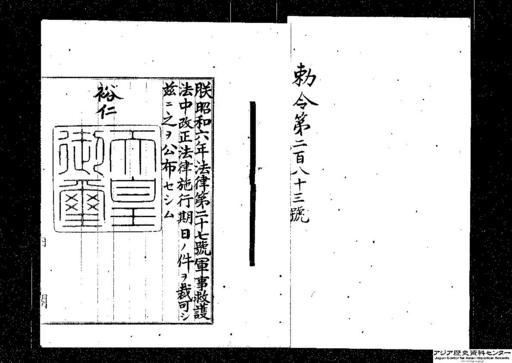 勅令第二百八十三號
朕昭和六年法律第二十七號軍事救護
法中改正法律施行期日ノ件ヲ裁可シ
茲ニ之ヲ公布セシム
裕仁
天皇
御璽
アジア歴史資料センター
Japan Center for Asian Historical Records